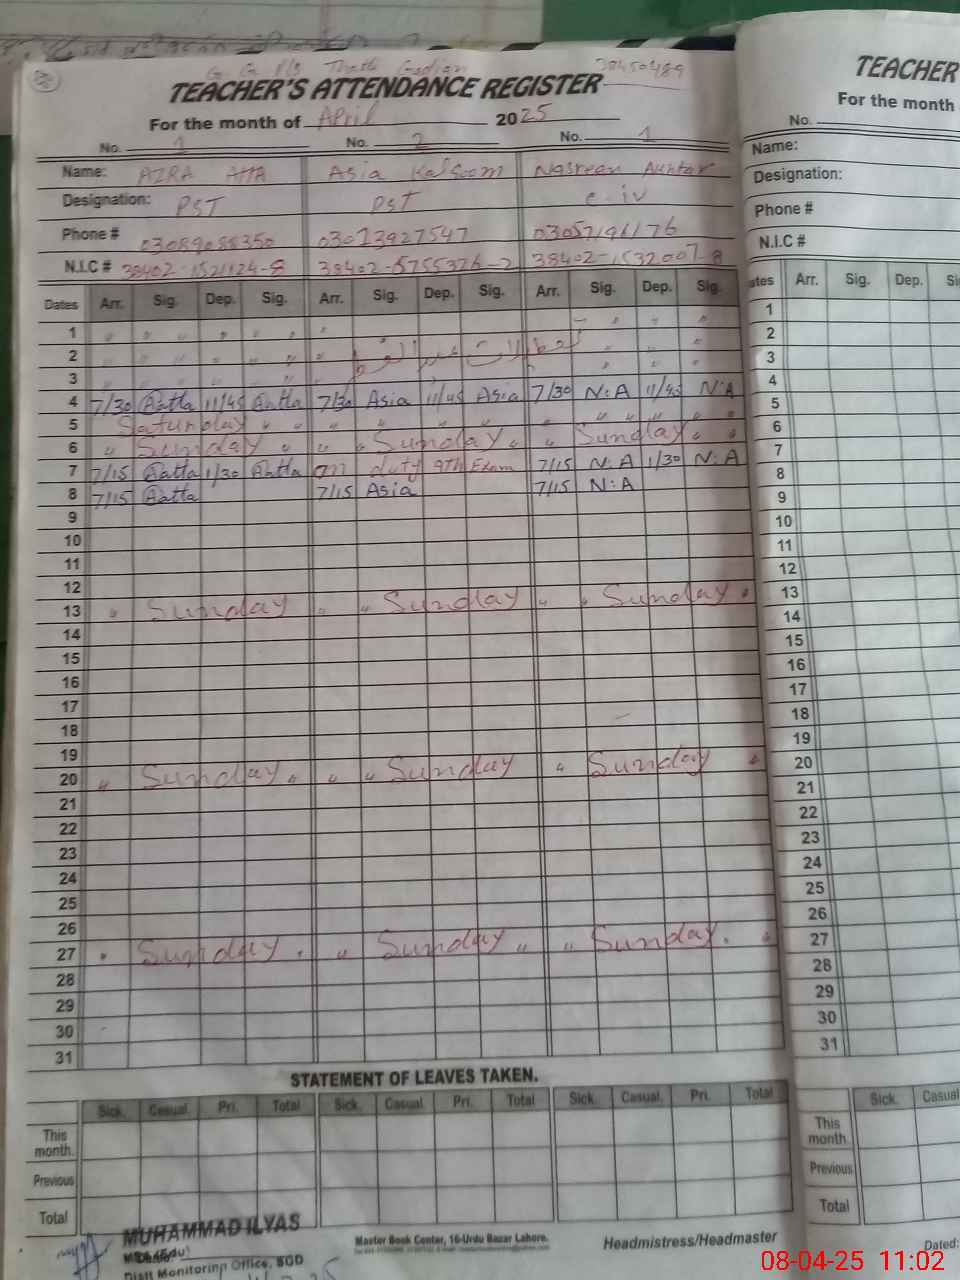 38450489
TEACHER'S ATTENDANCE REGISTER
For the month of April 2025
No. 1 No. 2 No. 1
Name: AZRA ATTA Asia Kalsoom Nasreen Akhtar
Designation: PST PST C-iv
Phone # 03089055350 03013927547 03057196176
N.I.C # 38402-1521124-8 38402-5755376-2 38402-1532007-8
Dates Arr. Sig. Dep. Sig. Arr. Sig. Dep. Sig. Arr. Sig. Dep. Sig.
1 " " " " " " " " "
2 " " " " " " تعطیلات عید الفطر " " "
3 " " " " " " " " "
4 7/30 Aatta 11/45 Aatta 7/30 Asia 11/45 Asia 7/30 N.A 11/45 N.A
5 Saturday " " " " " " " " " "
6 " Sunday " " " Sunday " " Sunday " "
7 7/15 Aatta 1/30 Aatta on duty 9th Exam 7/15 N.A 1/30 N.A
8 7/15 Aatta 7/15 Asia 7/15 N.A
9
10
11
12
13 " Sunday " " Sunday " " Sunday "
14
15
16
17
18
19
20 " Sunday " " " Sunday " Sunday "
21
22
23
24
25
26
27 " Sunday " " Sunday " " Sunday "
28
29
30
31
STATEMENT OF LEAVES TAKEN.
Sick. Casual. Pri. Total Sick. Casual. Pri. Total Sick. Casual. Pri. Total
This month.
Previous
Total
MUHAMMAD ILYAS
Distt Monitoring Office, SGD
Master Book Center, 16-Urdu Bazar Lahore.
Headmistress/Headmaster
TEACHER
For the month
No.
Name:
Designation:
Phone #
N.I.C #
ates Arr. Sig. Dep. Si
1
2
3
4
5
6
7
8
9
10
11
12
13
14
15
16
17
18
19
20
21
22
23
24
25
26
27
28
29
30
31
Sick. Casual
This month.
Previous
Total
Dated:
08-04-25 11:02